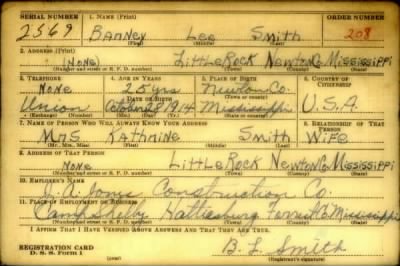 SERIAL NUMBER 1. NAME (Print) ORDER NUMBER
2569 BARNEY LEE SMITH 208
(First) (Middle) (Last)
2. ADDRESS (Print)
(NONE) LITTLE ROCK NEWTON CO. MISSISSIPPI
(Number and street or R. F. D. number) (Town) (County) (State)
3. TELEPHONE 4. AGE IN YEARS 5. PLACE OF BIRTH 6. COUNTRY OF CITIZENSHIP
NONE 25 yrs Newton Co.
DATE OF BIRTH
Union October 8 1914 Mississippi U.S.A
(Exchange) (Number) (Mo.) (Day) (Yr.) (State or country)
7. NAME OF PERSON WHO WILL ALWAYS KNOW YOUR ADDRESS 8. RELATIONSHIP OF THAT PERSON
MRS KATHRINE SMITH WIFE
(Mr., Mrs., Miss) (First) (Middle) (Last)
9. ADDRESS OF THAT PERSON
NONE LITTLE ROCK NEWTON CO. MISSISSIPPI
(Number and street or R. F. D. number) (Town) (County) (State)
10. EMPLOYER'S NAME
Construction Co.
11. PLACE OF EMPLOYMENT OR BUSINESS
Camp Shelby Hattiesburg Forrest Co. Mississippi
(Number and street or R. F. D. number) (Town) (County) (State)
I AFFIRM THAT I HAVE VERIFIED ABOVE ANSWERS AND THAT THEY ARE TRUE.
REGISTRATION CARD B. L. Smith
D. S. S. Form 1 (Registrant's signature)